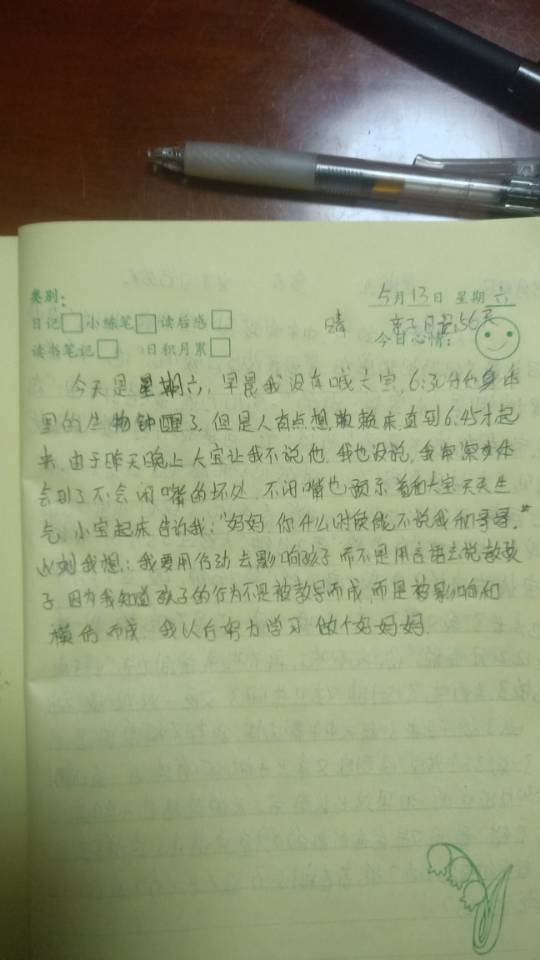 类别： 5月13日 星期六
日记 小练笔 读后感 晴 亲子日记56天
读书笔记 日积月累 今日心情：
今天是星期六，早晨我没有喊大宝，6:30分他身体
里的生物钟醒了，但是人有点想耍赖床，直到6:45才起
来，由于昨天晚上大宝让我不说他，我也没说，我深深体
会到了不会闭嘴的坏处，不闭嘴也 着大宝天天生
气，小宝起床告诉我："妈妈 你什么时候能不说我和哥哥，"
此刻我想：我要用行动去影响孩子而不是用言语去说教孩
子 因为我知道孩子的行为不是被教导而成，而是被影响和
模仿而成，我以后努力学习 做个好妈妈.